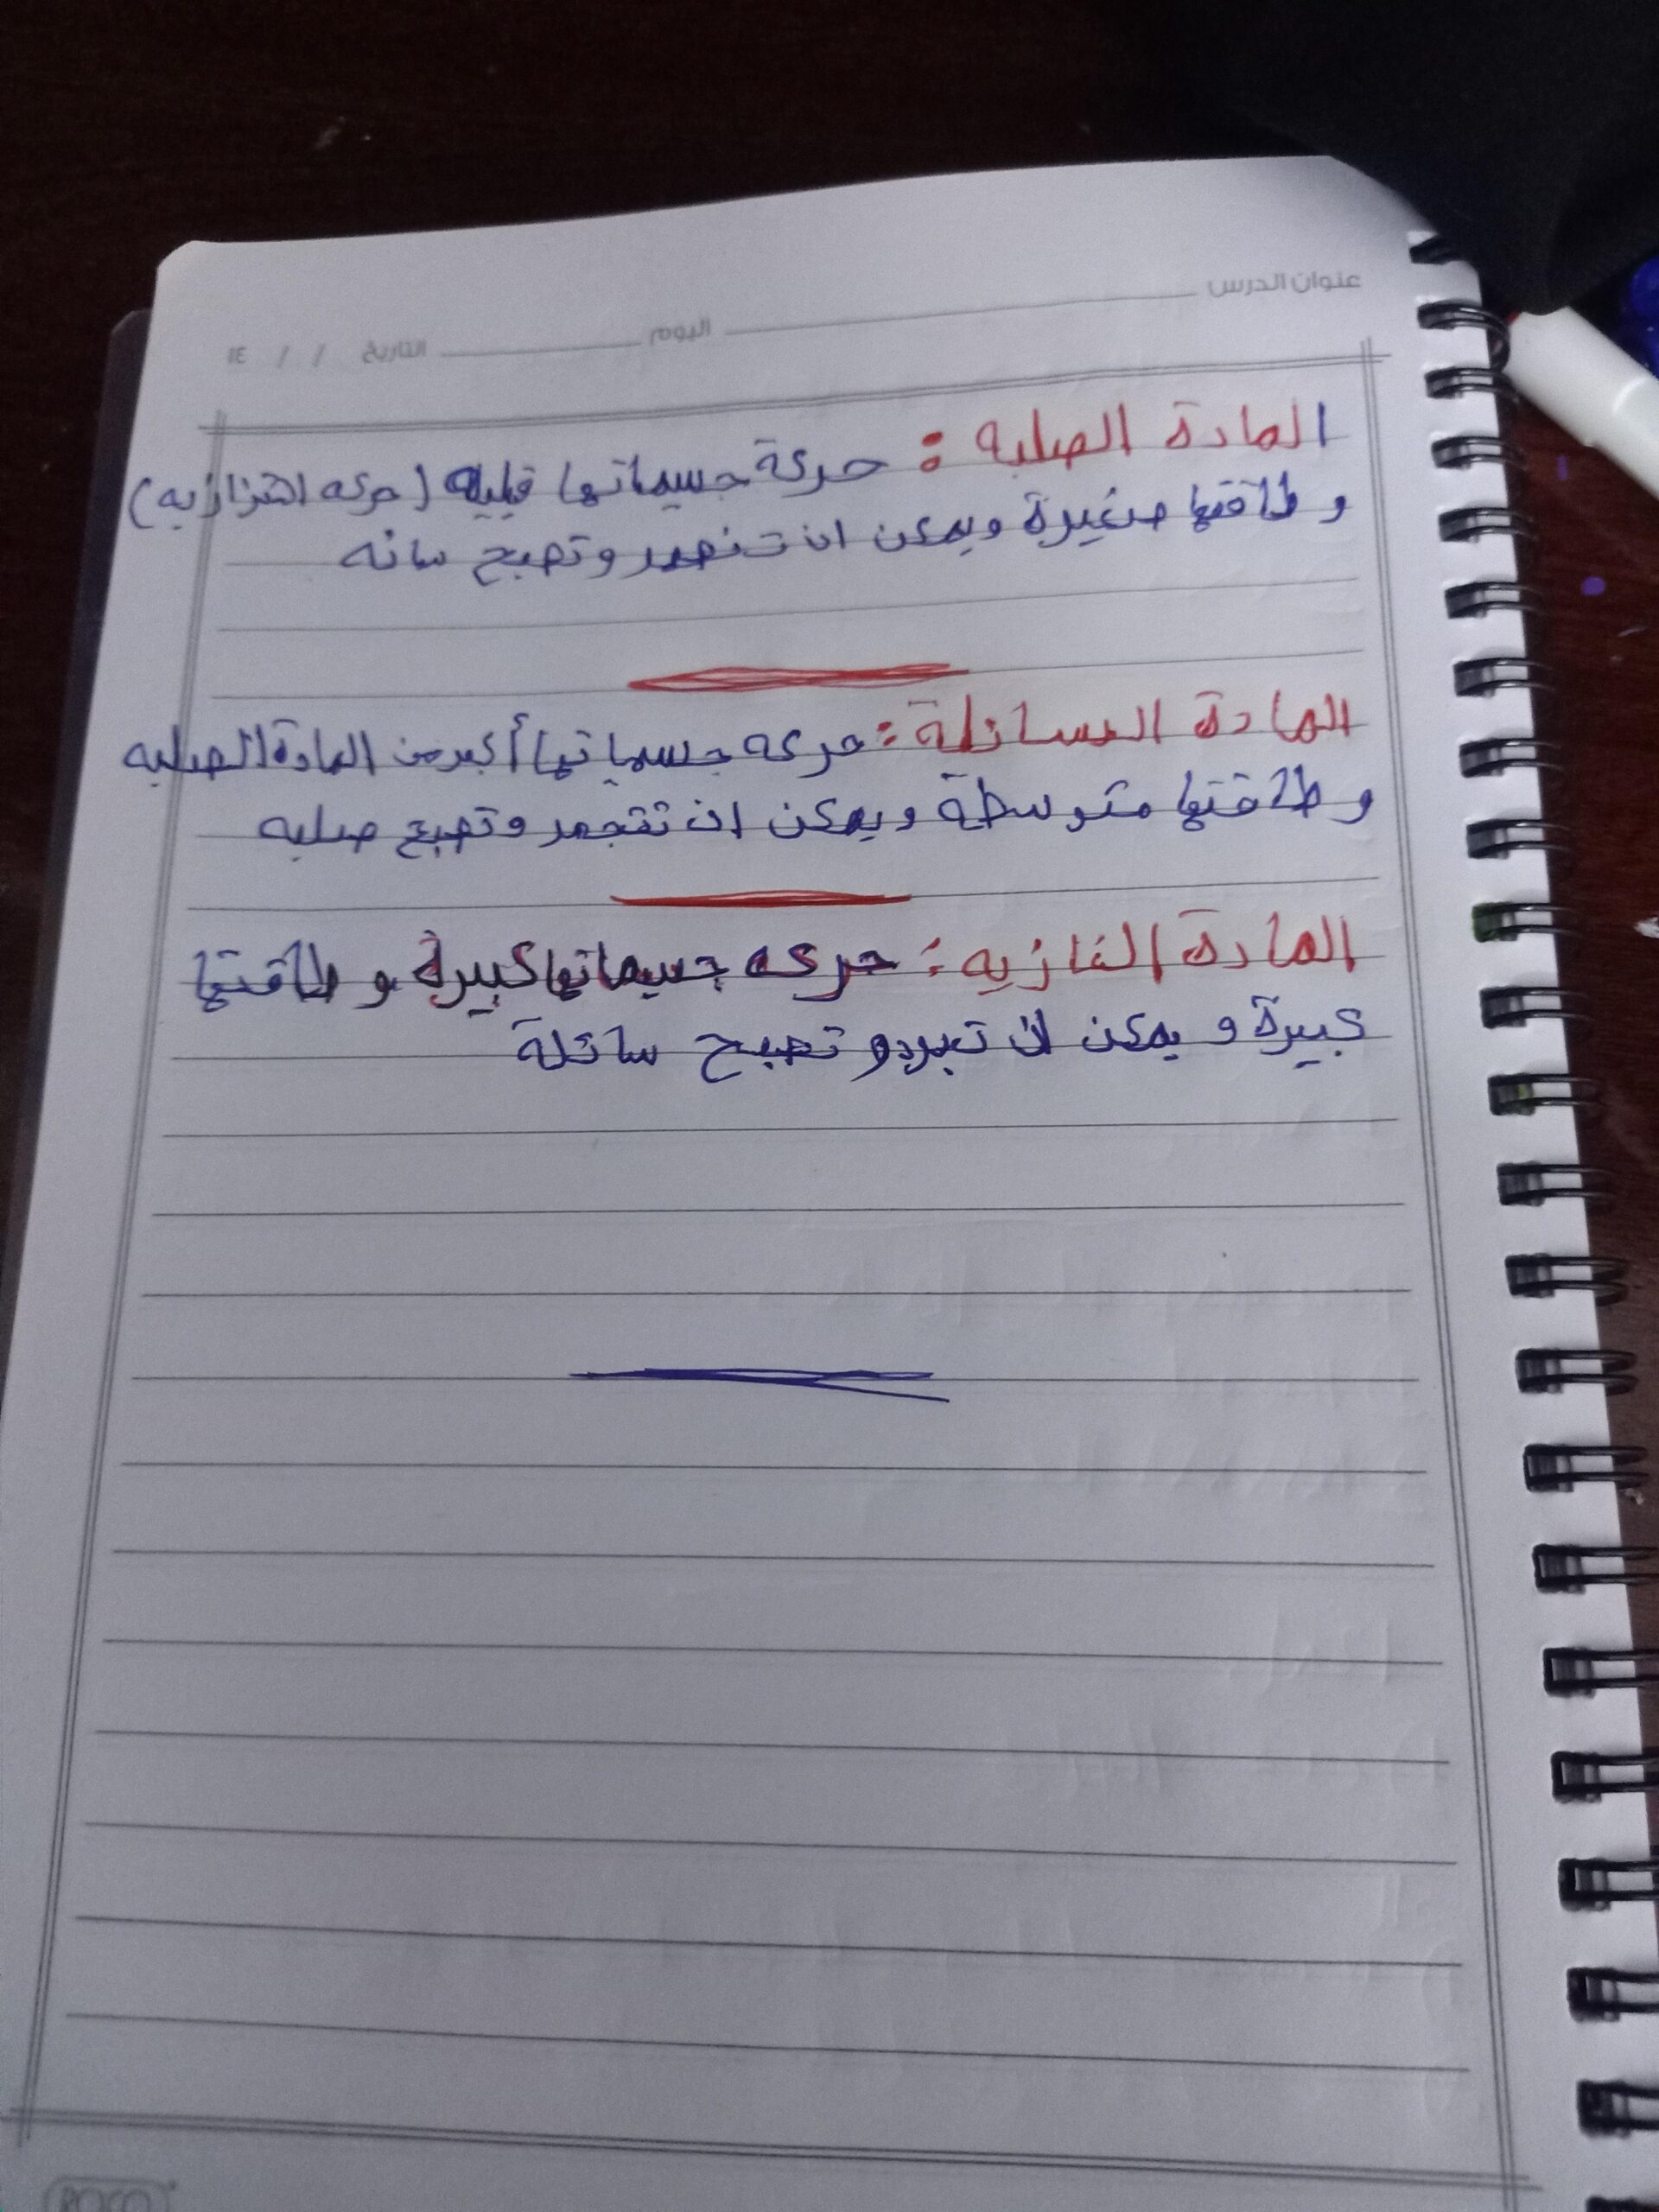 عنوان الدرس
اليوم التاريخ / / ١٤
المادة الصلبه : حركة جسيماتها قليله (حركه اهتزازيه)
و طاقتها صغيرة ويمكن ان تنصهر وتصبح سائله
المادة السائلة : حركه جسيماتها أكبر من المادة الصلبه
و طاقتها متوسطة ويمكن ان تتجمد وتصبح صلبه
المادة الغازيه : حركه جسيماتها كبيرة و طاقتها
كبيرة و يمكن ان تبرد و تصبح سائلة
ROCO